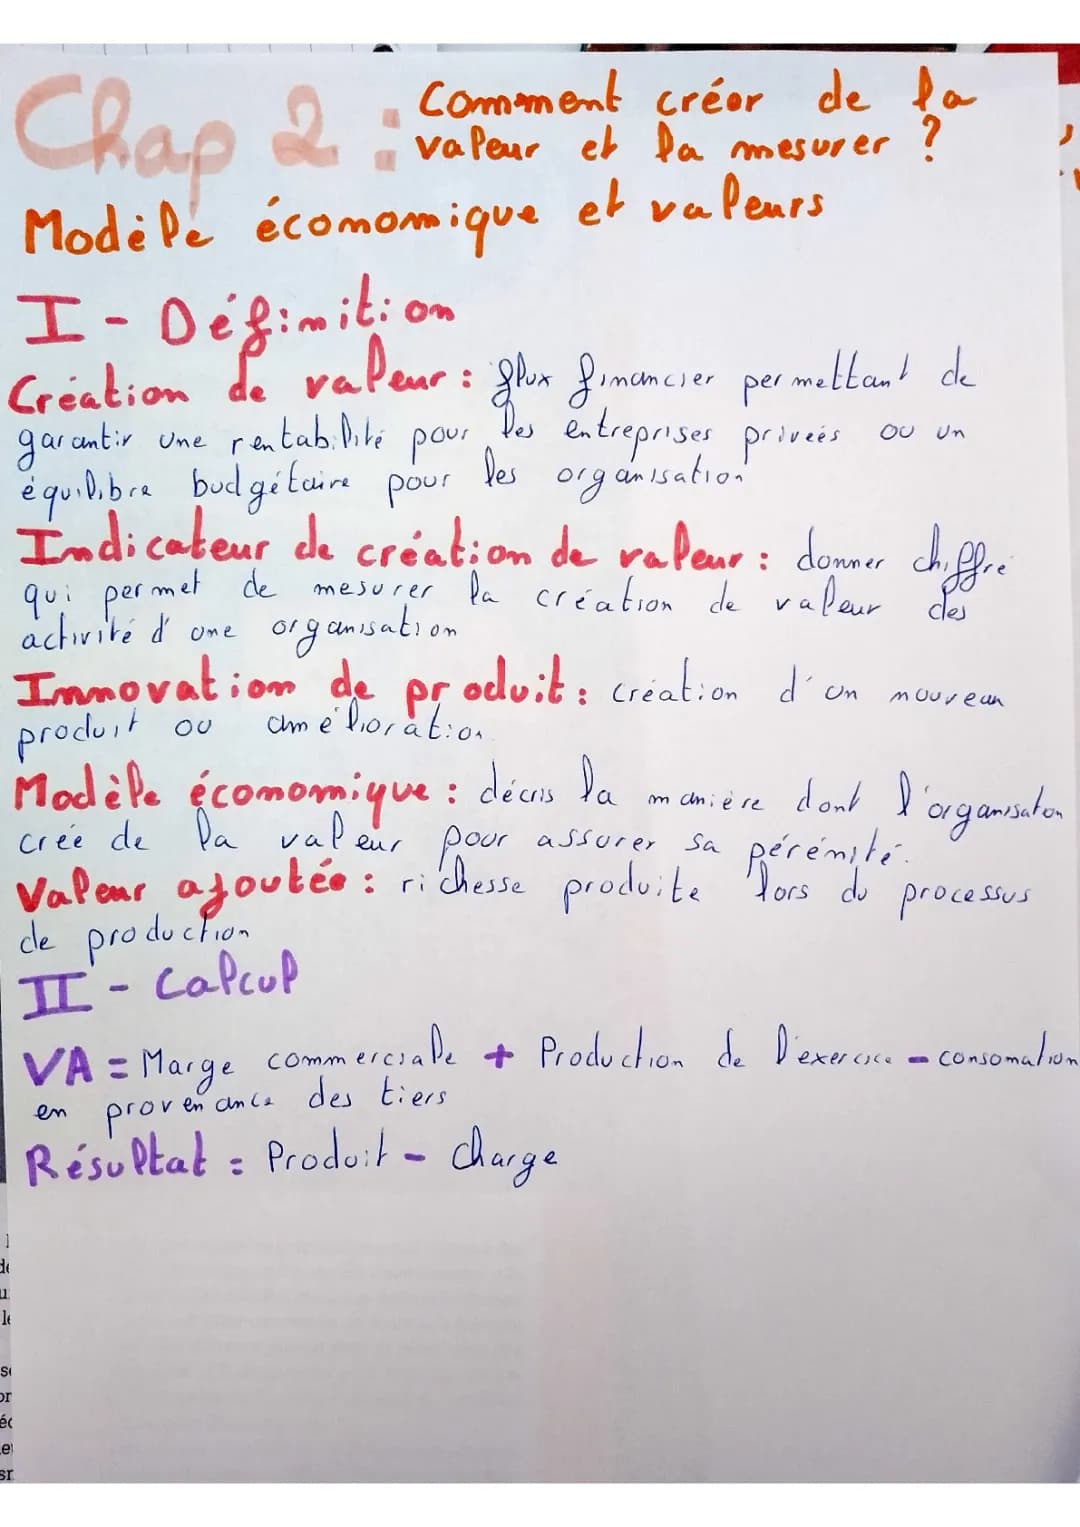 Chap 2 : Comment créer de la
valeur et la mesurer ?
Modèle économique et valeurs
I - Définition
Création de valeur : flux financier permettant de
garantir une rentabilité pour les entreprises privées ou un
équilibre budgétaire pour les organisation
Indicateur de création de valeur : donner chiffré
qui permet de mesurer la création de valeur des
activité d'une organisation
Innovation de produit : création d'un nouveau
produit ou amélioration
Modèle économique : décris la manière dont l'organisation
créé de la valeur pour assurer sa pérénité.
Valeur ajoutée : richesse produite lors du processus
de production
II - Calcul
VA = Marge commerciale + Production de l'exercice - consomation
en provenance des tiers
Résultat = Produit - charge
de
u
le